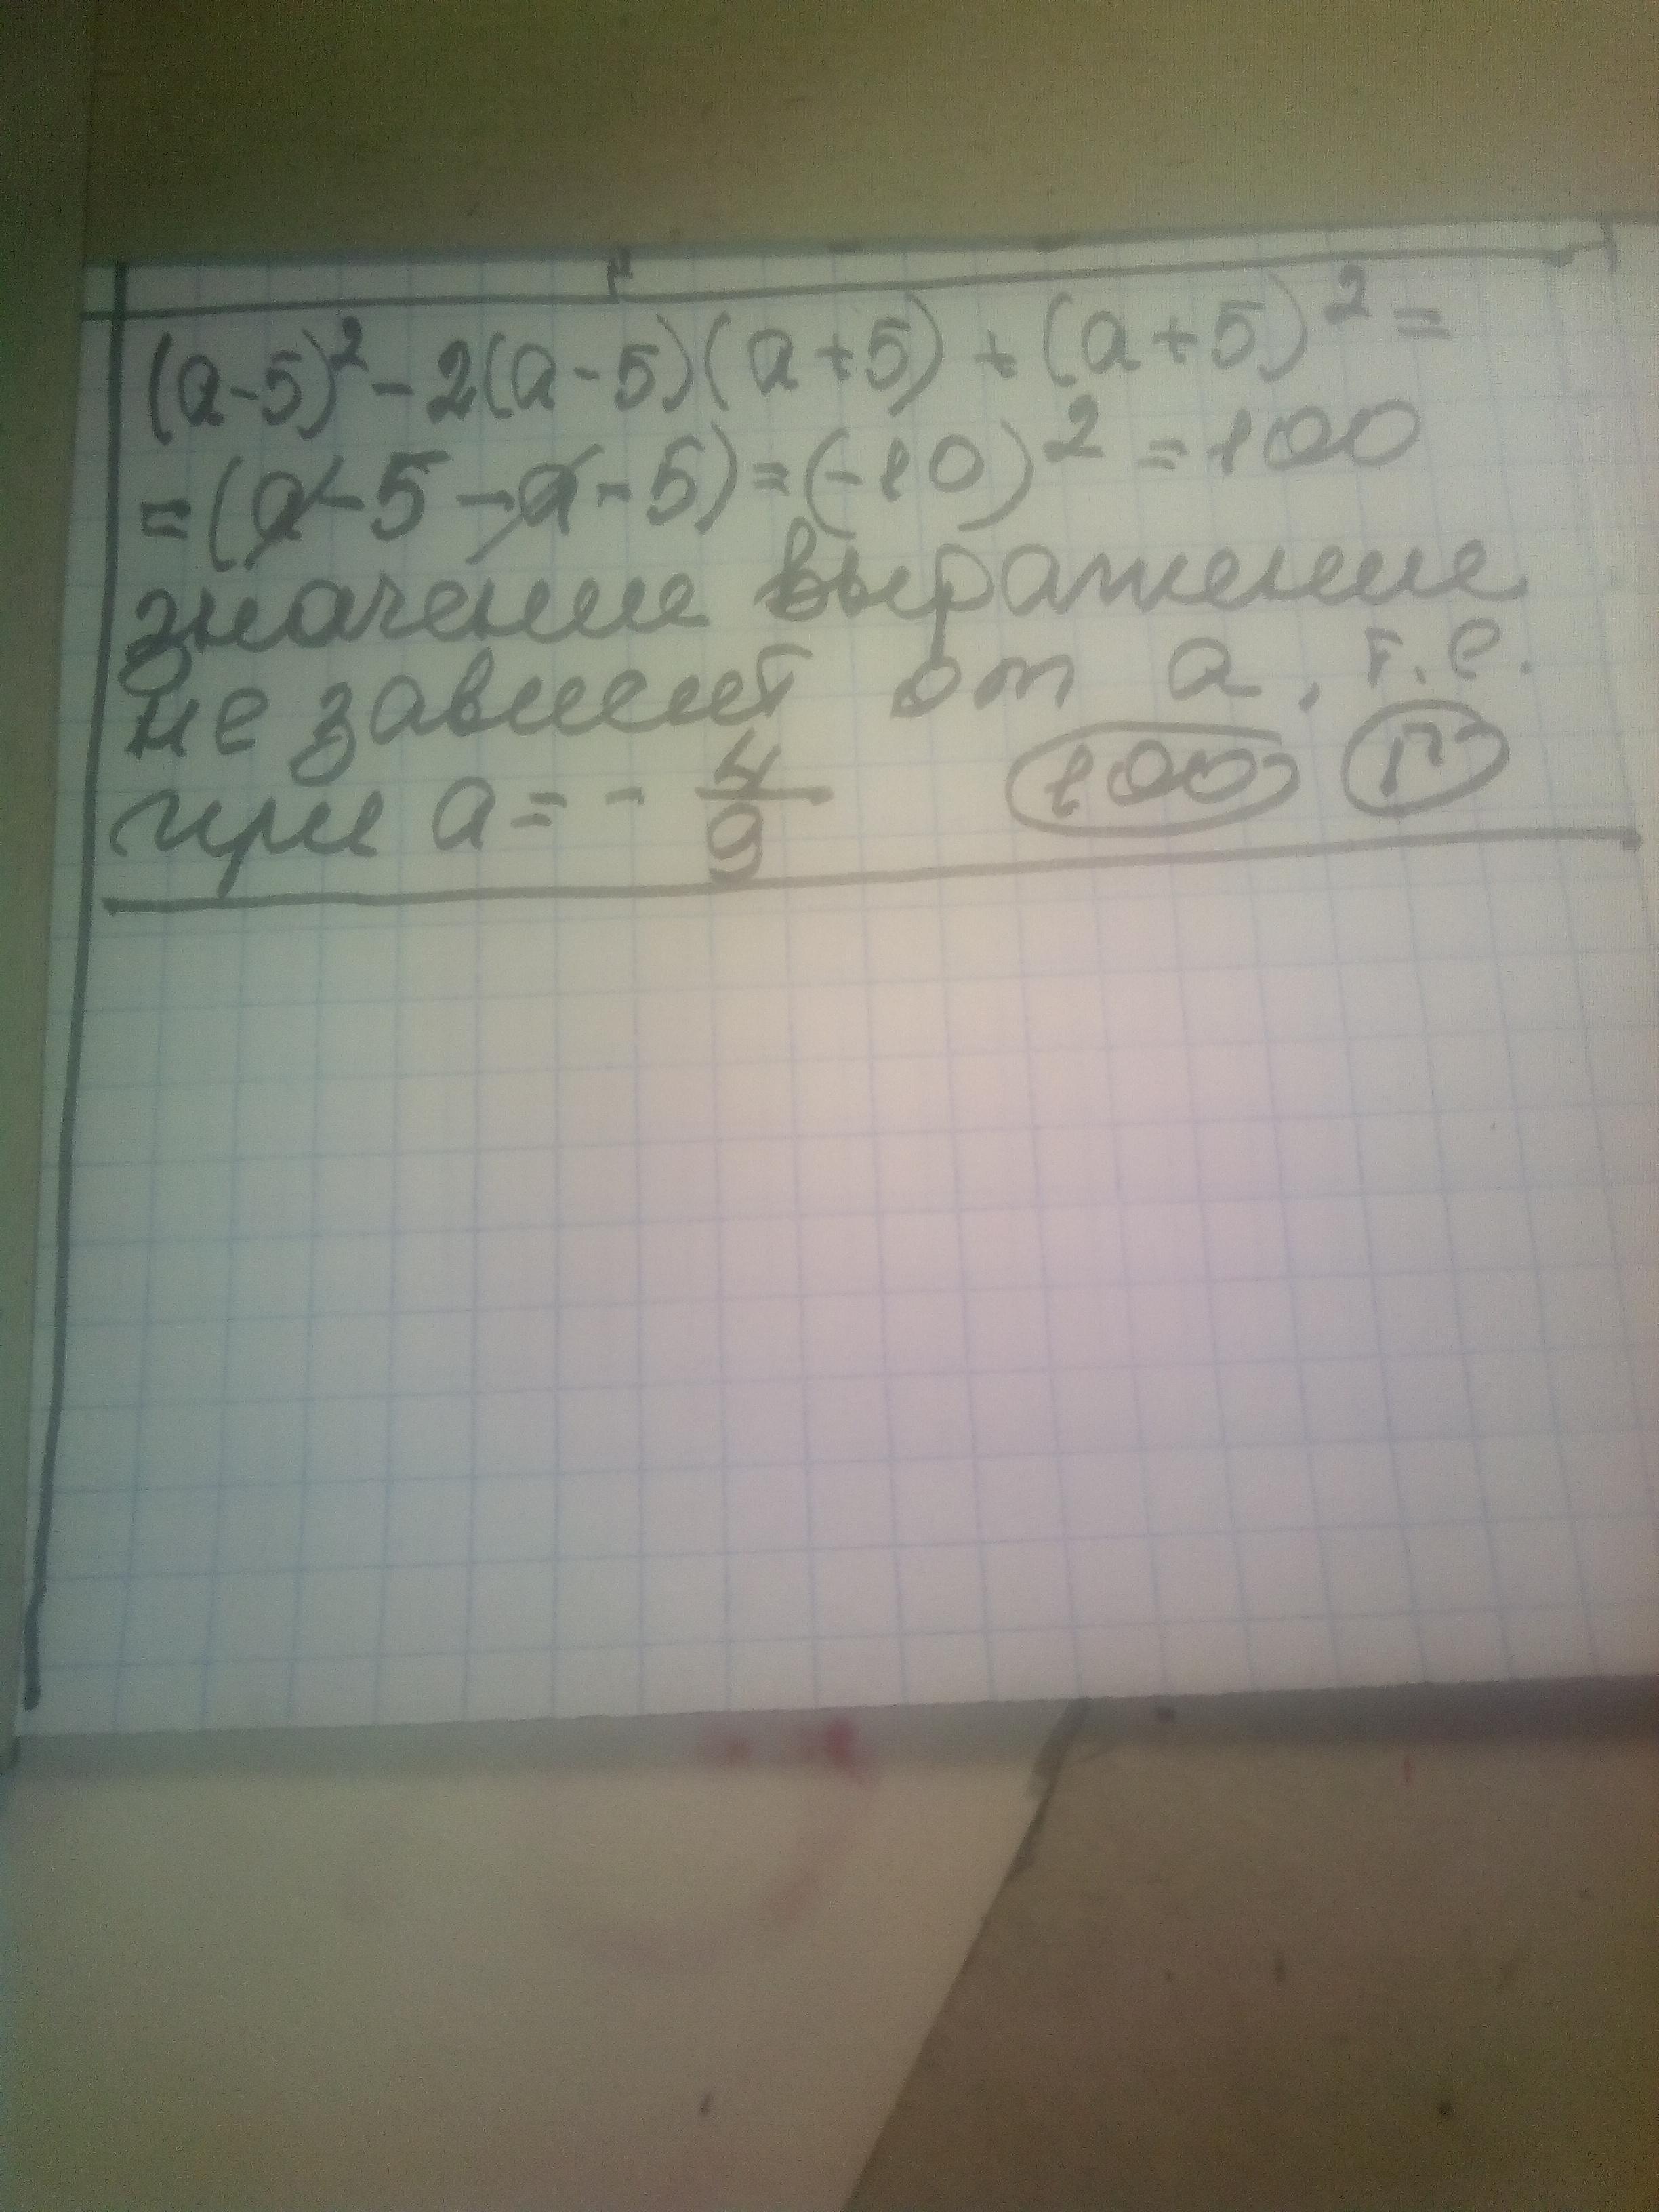 (a-5)² - 2(a-5)(a+5) + (a+5)² =
= (a - 5 - a - 5) = (-10)² = 100
значение выражение
не зависит от a, т.е.
при a = - 4/9 100 Г